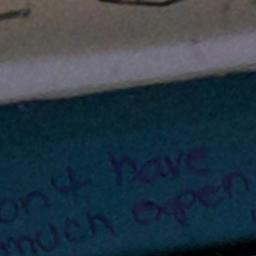 on4 have
much expen